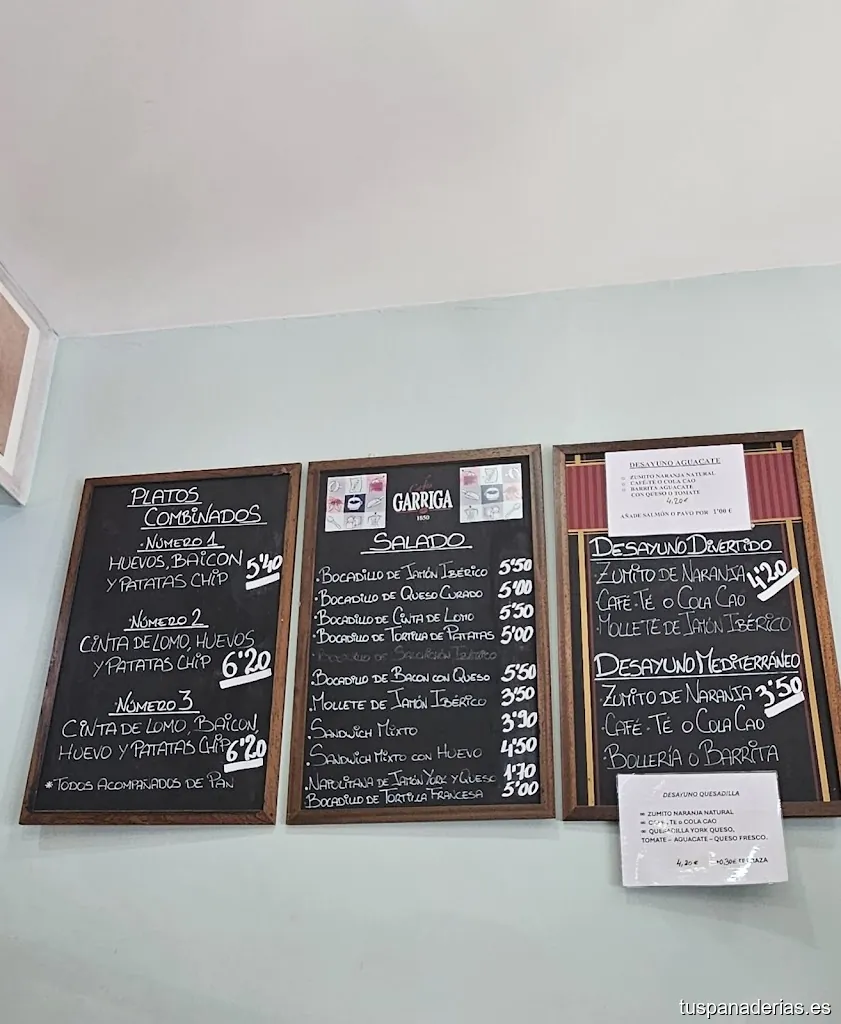 PLATOS
COMBINADOS
·NÚMERO 1
HUEVOS, BAICON
Y PATATAS CHIP
5'40
NÚMERO 2
CINTA DE LOMO, HUEVOS
Y PATATAS CHIP
6'20
NÚMERO 3
CINTA DE LOMO, BAICON,
HUEVO Y PATATAS CHIP
6'20
*TODOS ACOMPAÑADOS DE PAN
GARRIGA
1850
SALADO
·BOCADILLO DE JAMÓN IBÉRICO 5'50
·BOCADILLO DE QUESO CURADO 5'00
·BOCADILLO DE CINTA DE LOMO 5'50
·BOCADILLO DE TORTILLA DE PATATAS 5'00
·BOCADILLO DE SALCHICHÓN IBÉRICO
·BOCADILLO DE BACON CON QUESO 5'50
·MOLLETE DE JAMÓN IBÉRICO 3'50
·SANDWICH MIXTO 3'90
·SANDWICH MIXTO CON HUEVO 4'50
·NAPOLITANA DE JAMÓN YORK Y QUESO 1'70
BOCADILLO DE TORTILLA FRANCESA 5'00
DESAYUNO AGUACATE
ZUMITO NARANJA NATURAL
CAFÉ-TÉ O COLA CAO
BARRITA AGUACATE
CON QUESO O TOMATE
4,20€
AÑADE SALMÓN O PAVO POR 1'00 €
DESAYUNO DIVERTIDO
·ZUMITO DE NARANJA 4'20
·CAFÉ-TÉ O COLA CAO
·MOLLETE DE JAMÓN IBÉRICO
DESAYUNO MEDITERRÁNEO
·ZUMITO DE NARANJA 3'50
·CAFÉ-TÉ O COLA CAO
·BOLLERÍA O BARRITA
DESAYUNO QUESADILLA
ZUMITO NARANJA NATURAL
TE O COLA CAO
QUESADILLA YORK QUESO,
TOMATE – AGUACATE – QUESO FRESCO.
4,20€
tuspanaderias.es